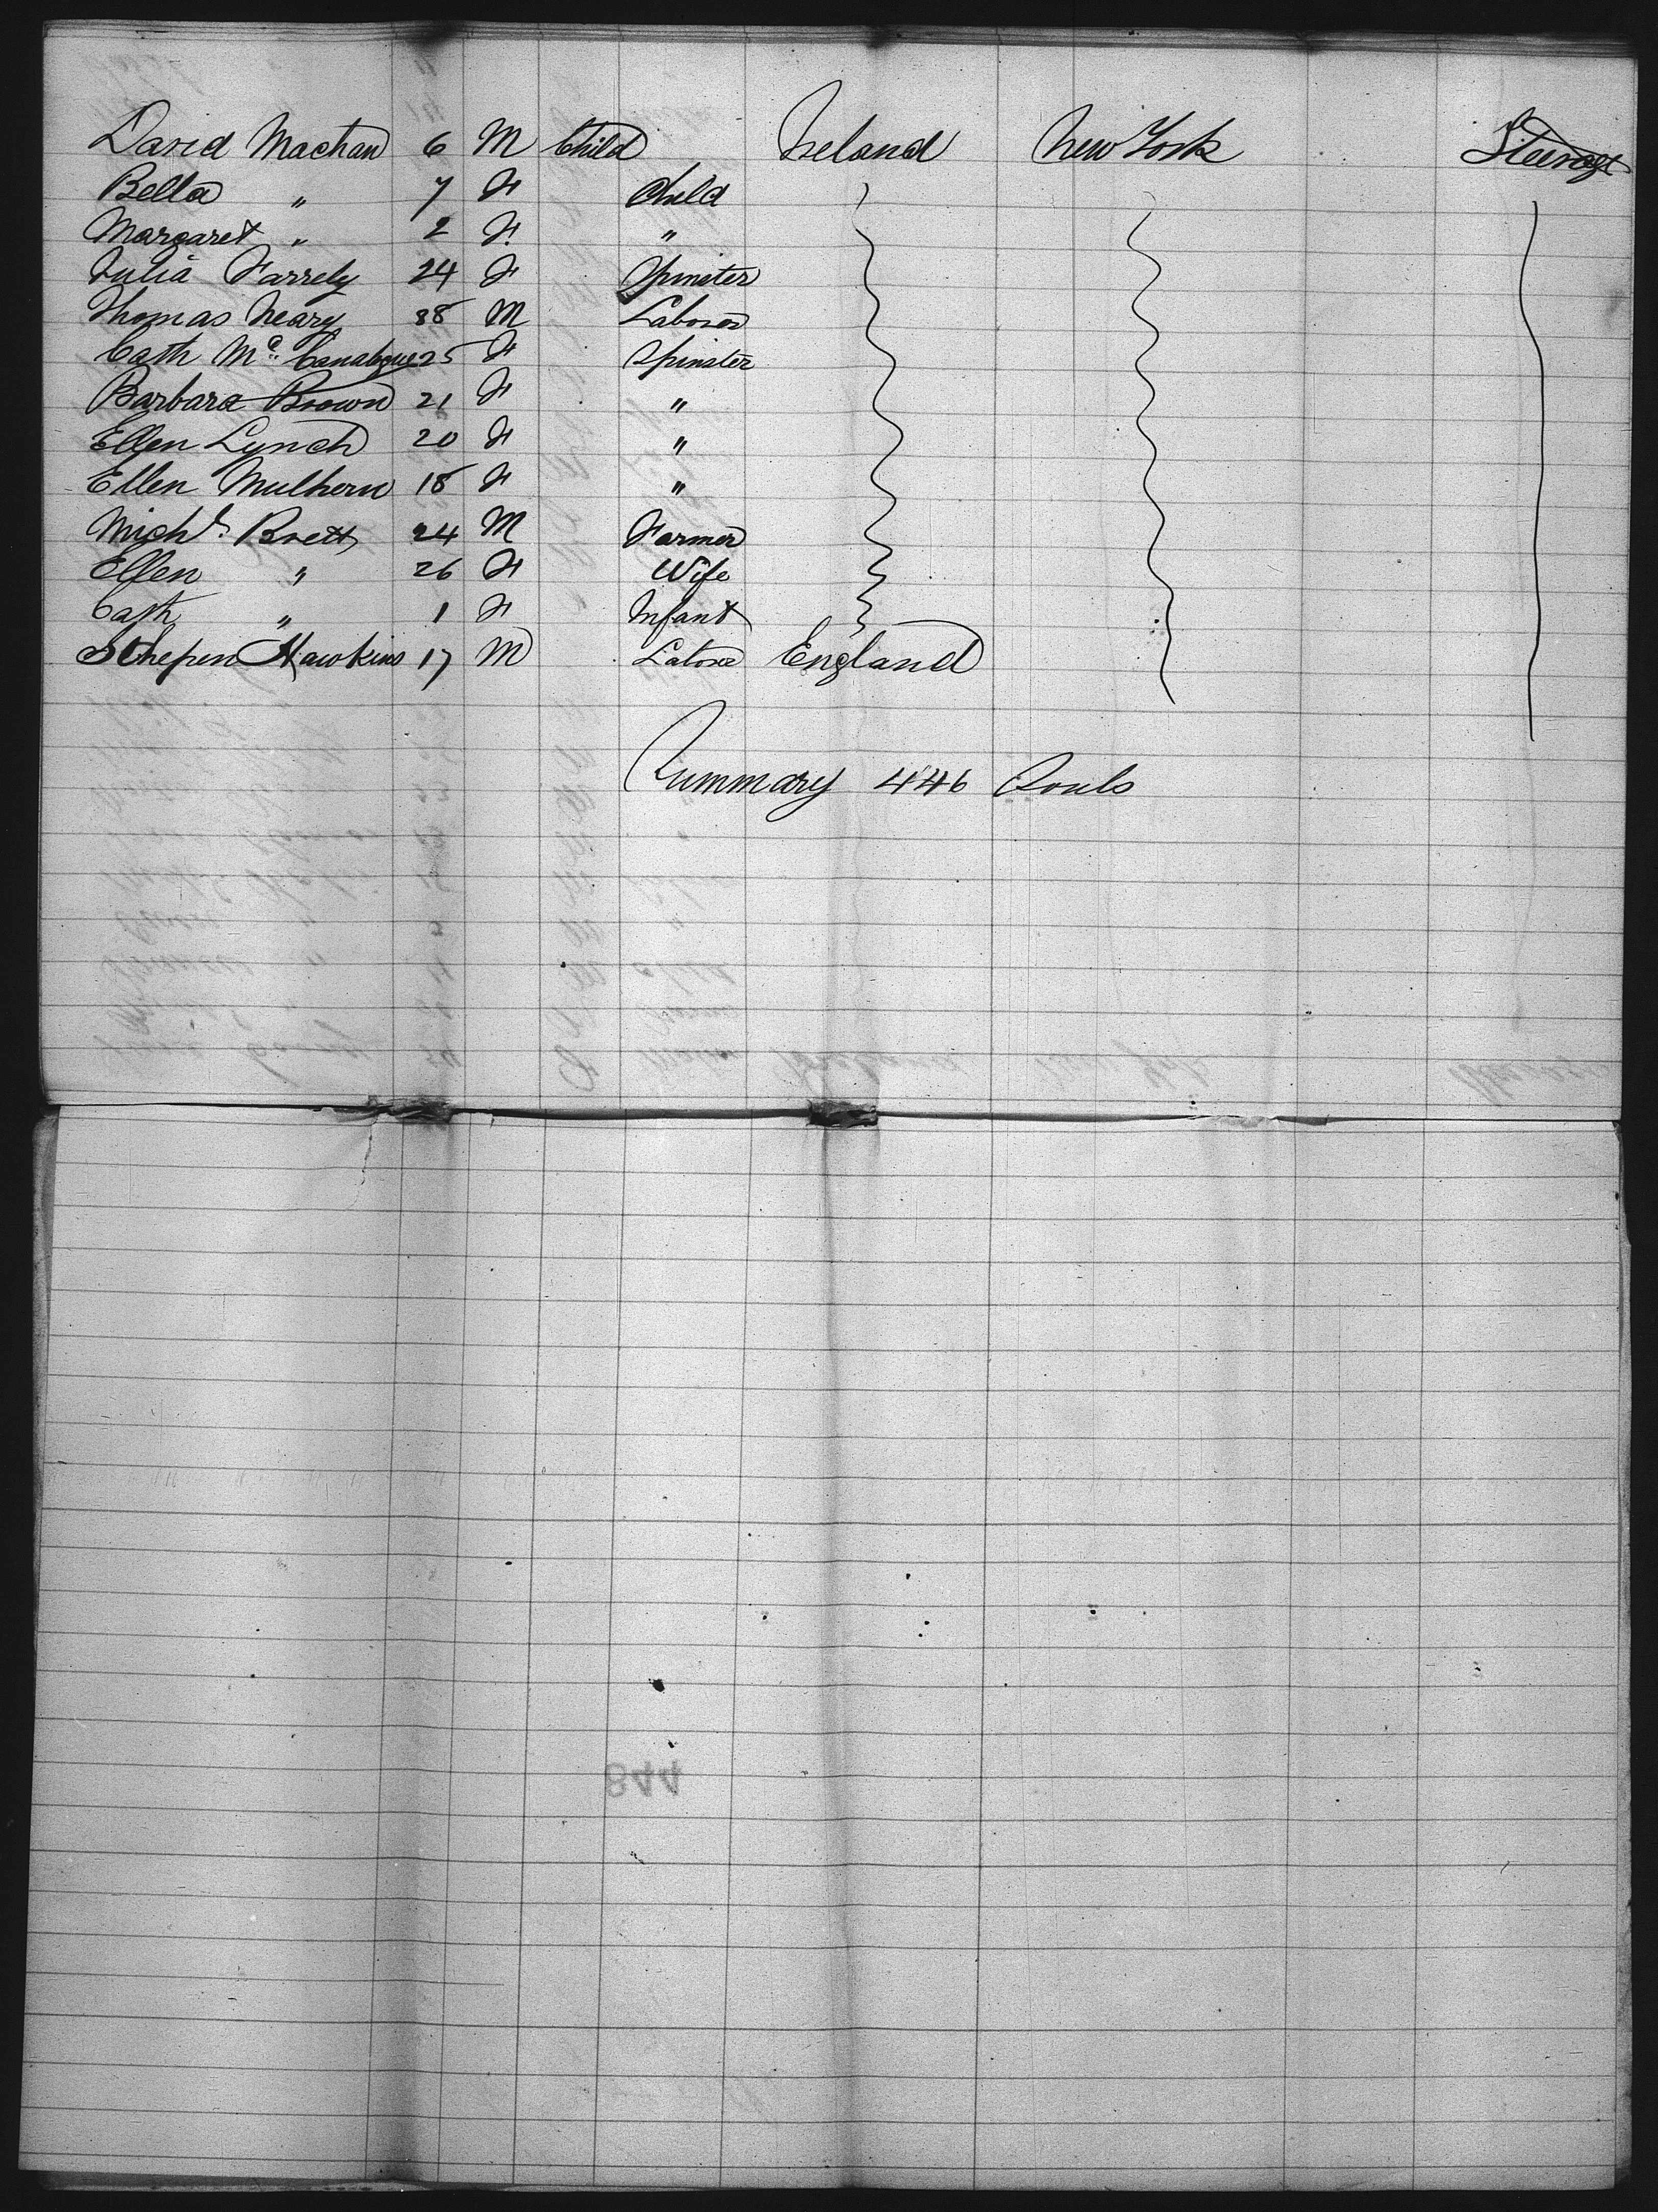 David Machan 6 M Child Ireland New York Steerage
Bella " 7 F Child
Margaret " 2 F. "
Julia Farrely 24 F Spinster
Thomas Neary 38 M Laborer
Cath Mc 25 F Spinster
Barbara Brown 21 F "
Ellen Lynch 20 F "
Ellen Mulhern 18 F "
Michl. Brett 24 M Farmer
Ellen " 26 F Wife
Cath " 1 F Infant
Sthepen Hawkins 17 M England
Summary 446 Souls